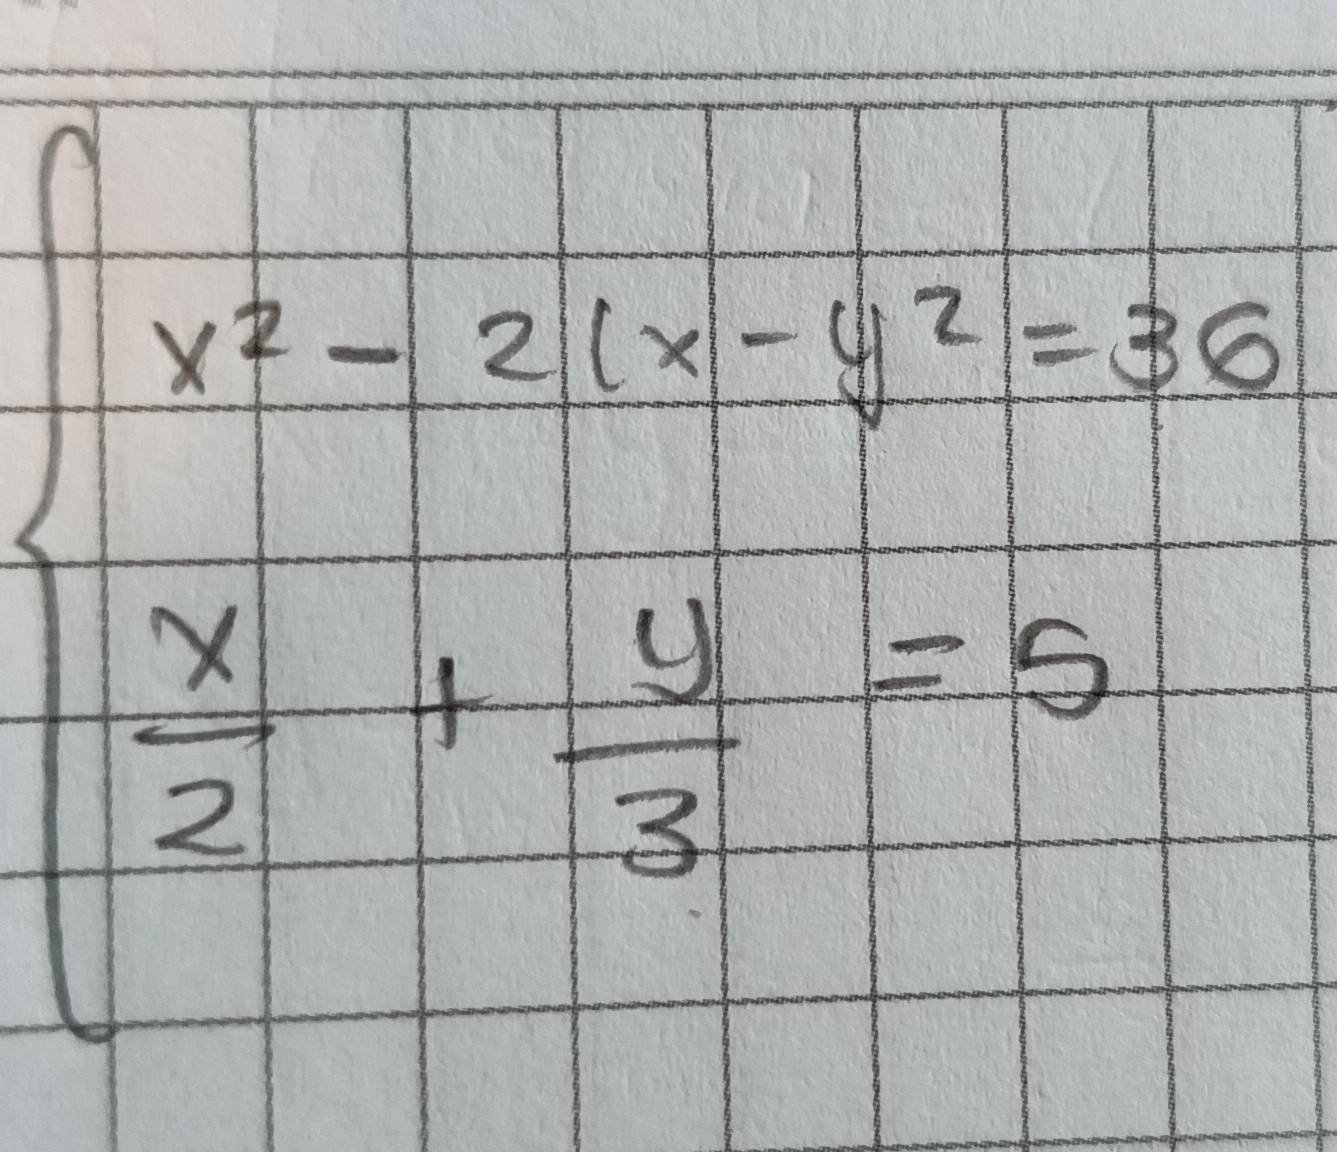 x² - 2(x - y² = 36
x/2 + y/3 = 5